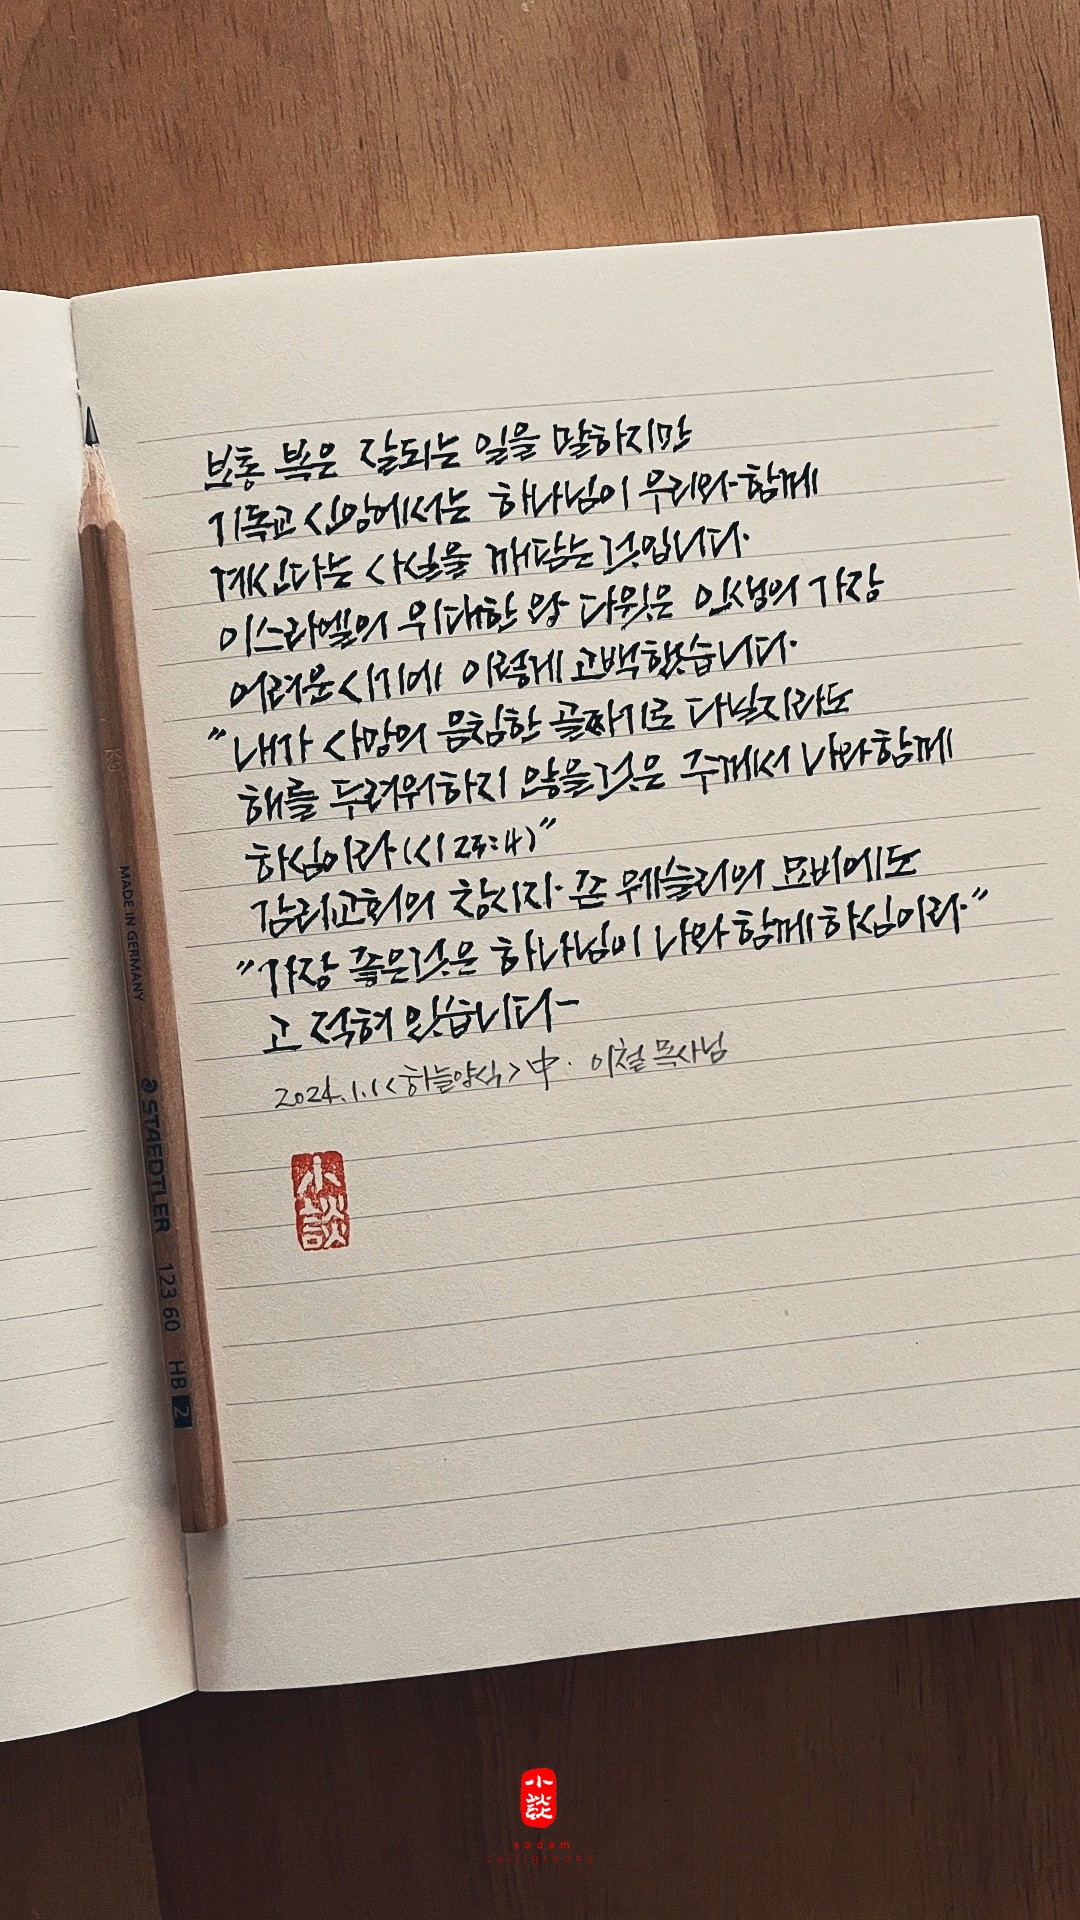 보통 복은 잘되는 일을 말하지만
기독교 신앙에서는 하나님이 우리와 함께
계신다는 사실을 깨닫는 것입니다.
이스라엘의 위대한 왕 다윗은 인생의 가장
어려운 시기에 이렇게 고백했습니다.
"내가 사망의 음침한 골짜기로 다닐지라도
해를 두려워하지 않을것은 주께서 나와 함께
하심이라 (시 23:4)"
감리교회의 창시자 존 웨슬리의 묘비에도
"가장 좋은것은 하나님이 나와 함께 하심이라."
고 적혀 있습니다-
2024.1.1 <하늘양식> 中. 이철 목사님
小談
MADE IN GERMANY
STAEDTLER 123 60 HB 2
小談
sodam
calligraphy